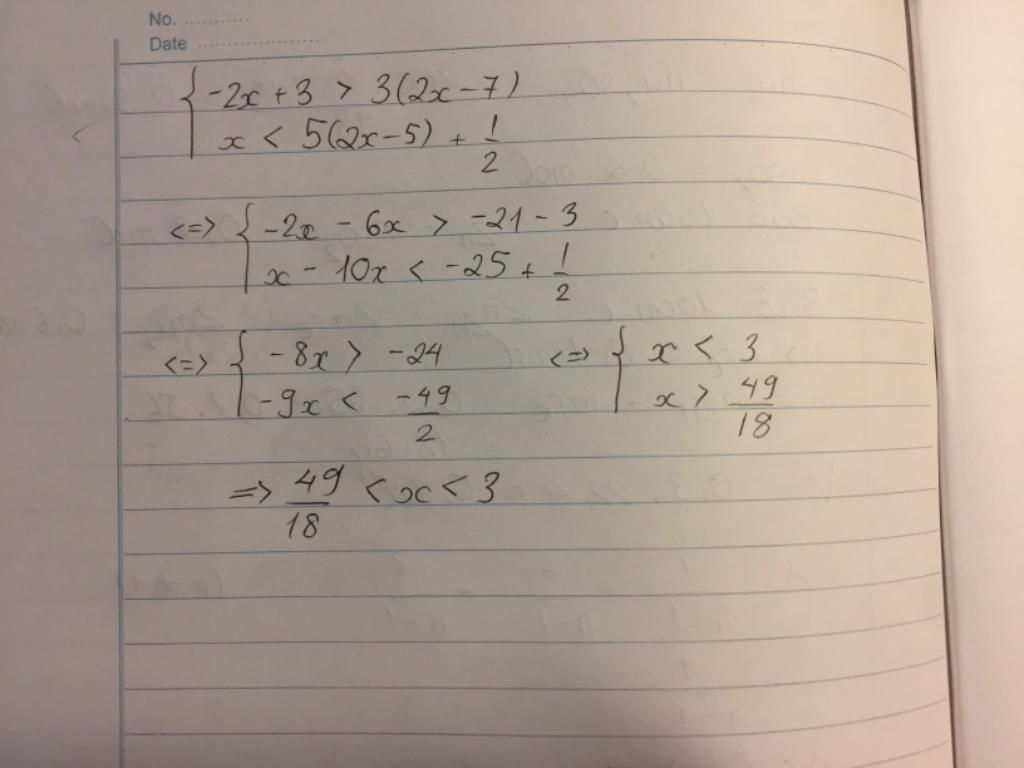 No. ...........
Date .......................
{ -2x + 3 > 3(2x - 7)
x < 5(2x - 5) + 1/2
<=> { -2x - 6x > -21 - 3
x - 10x < -25 + 1/2
<=> { -8x > -24 <=> { x < 3
-9x < -49/2 x > 49/18
=> 49/18 < x < 3